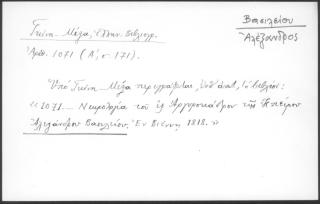 Βασιλείου
Ἀλέξανδρος
Γκίνη - Μέξα, Ἑλλην. Βιβλιογρ.
Ἀριθ. 1071 (Α', σ. 171).
Ὑπὸ Γκίνη - Μέξα περιγράφεται, ὑπ' ἀριθ., τὸ βιβλίον:
« 1071. - Νεκρολογία τοῦ ἐξ Ἀργυροκάστρου τῆς Ἠπείρου
Ἀλεξάνδρου Βασιλείου. Ἐν Βιέννῃ 1818. »